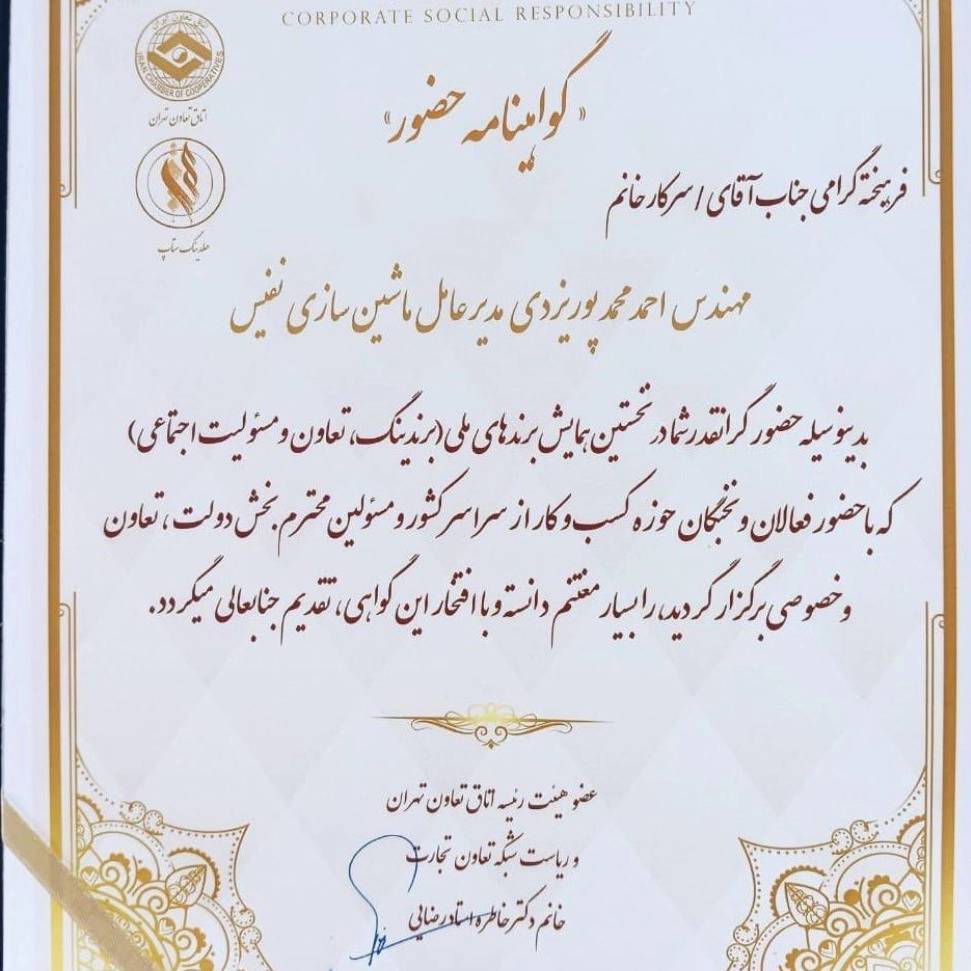 CORPORATE SOCIAL RESPONSIBILITY
اتاق تعاون ایران
IRAN CHAMBER OF COOPERATIVES
اتاق تعاون تهران
هلدینگ ستاپ
« گواهینامه حضور »
فرهیخته گرامی جناب آقای / سرکار خانم
مهندس احمد محمدپور یزدی مدیرعامل ماشین سازی نفیس
بدینوسیله حضور گرانقدر شما در نخستین همایش برندهای ملی (برندینگ، تعاون و مسئولیت اجتماعی)
که با حضور فعالان و نخبگان حوزه کسب و کار از سراسر کشور و مسئولین محترم بخش دولت، تعاون
و خصوصی برگزار گردید، را بسیار مغتنم دانسته و با افتخار این گواهی، تقدیم جنابعالی میگردد.
عضو هیئت رئیسه اتاق تعاون تهران
و ریاست شبکه تعاون تجارت
خانم دکتر خاطره استادرضایی